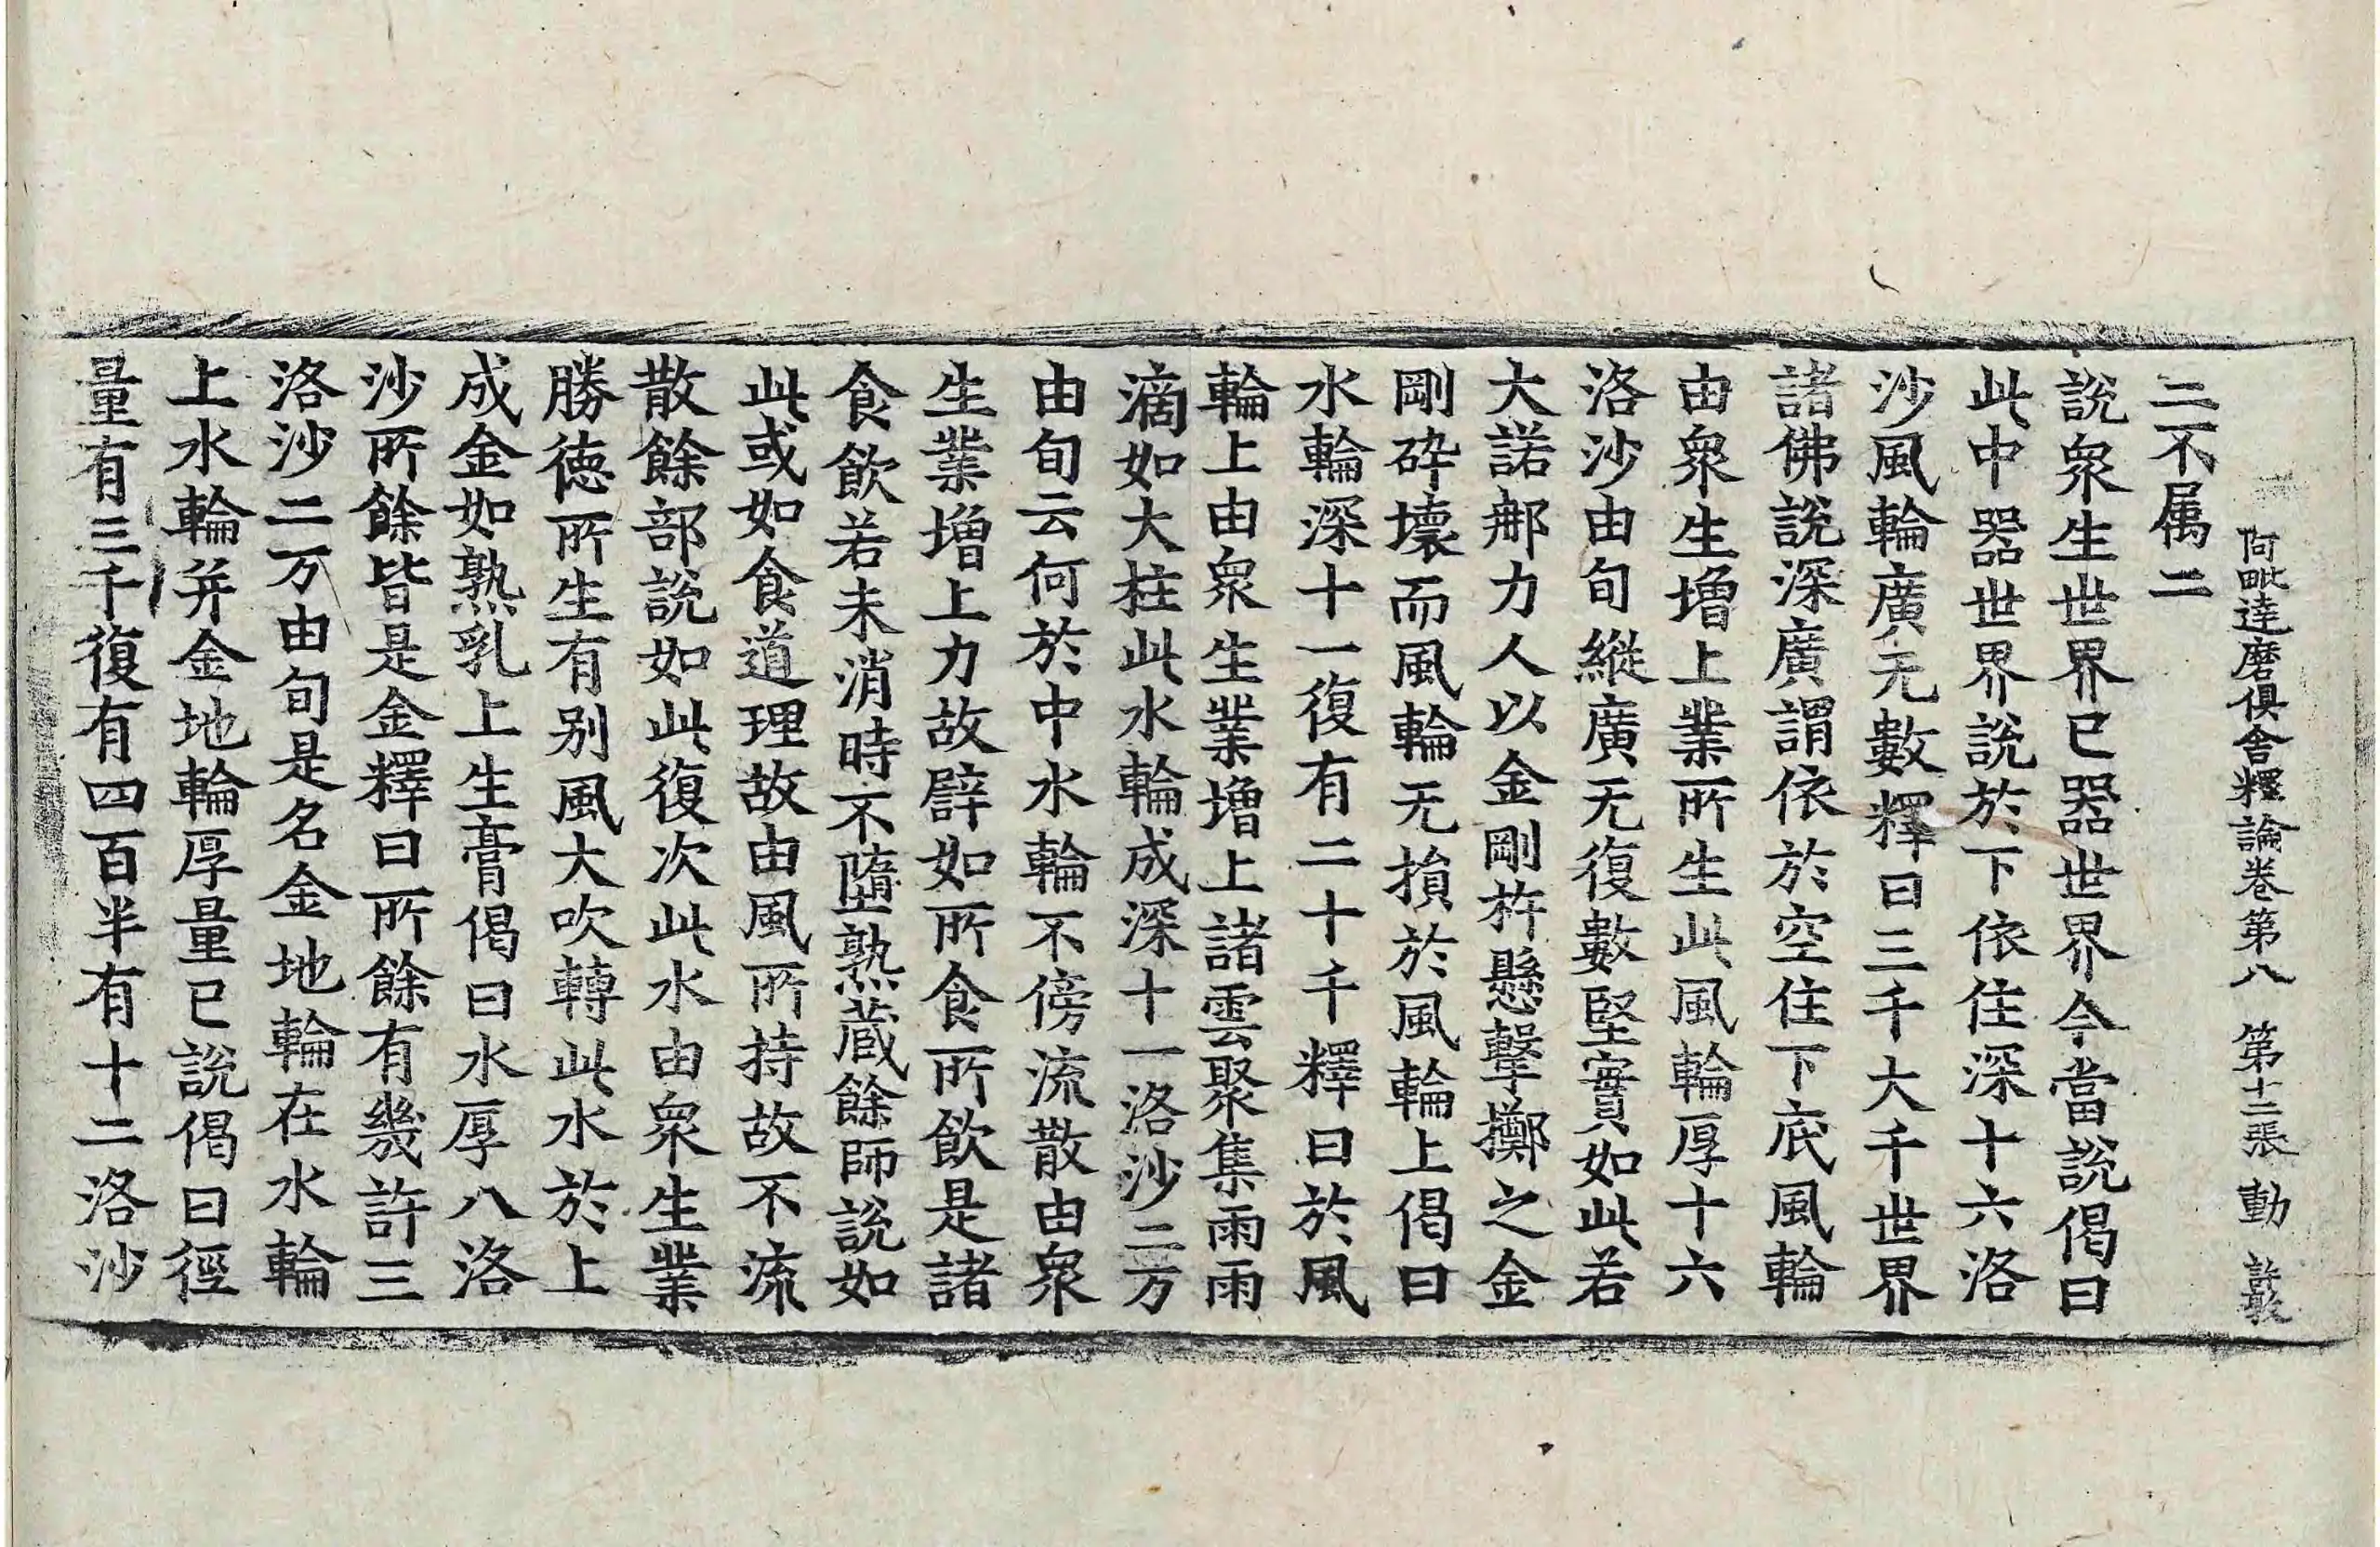 阿毗達磨俱舍釋論卷第八　第十二張　動　許敬
二不属二
說衆生世界已器世界今當說偈曰
此中器世界說於下依住深十六洛
沙風輪廣无數釋曰三千大千世界
諸佛說深廣謂依於空住下底風輪
由衆生增上業所生此風輪厚十六
洛沙由旬縱廣无復數堅實如此若
大諾那力人以金剛杵懸擊擲之金
剛碎壞而風輪无損於風輪上偈曰
水輪深十一復有二十千釋曰於風
輪上由衆生業增上諸雲聚集雨雨
滴如大柱此水輪成深十一洛沙二万
由旬云何於中水輪不傍流散由衆
生業增上力故譬如所食所飲是諸
食飲若未消時不墮熟蔵餘師說如
此或如食道理故由風所持故不流
散餘部說如此復次此水由衆生業
勝德所生有别風大吹轉此水於上
成金如熟乳上生膏偈曰水厚八洛
沙所餘皆是金釋曰所餘有幾許三
洛沙二万由旬是名金地輪在水輪
上水輪并金地輪厚量已說偈曰徑
量有三千復有四百半有十二洛沙